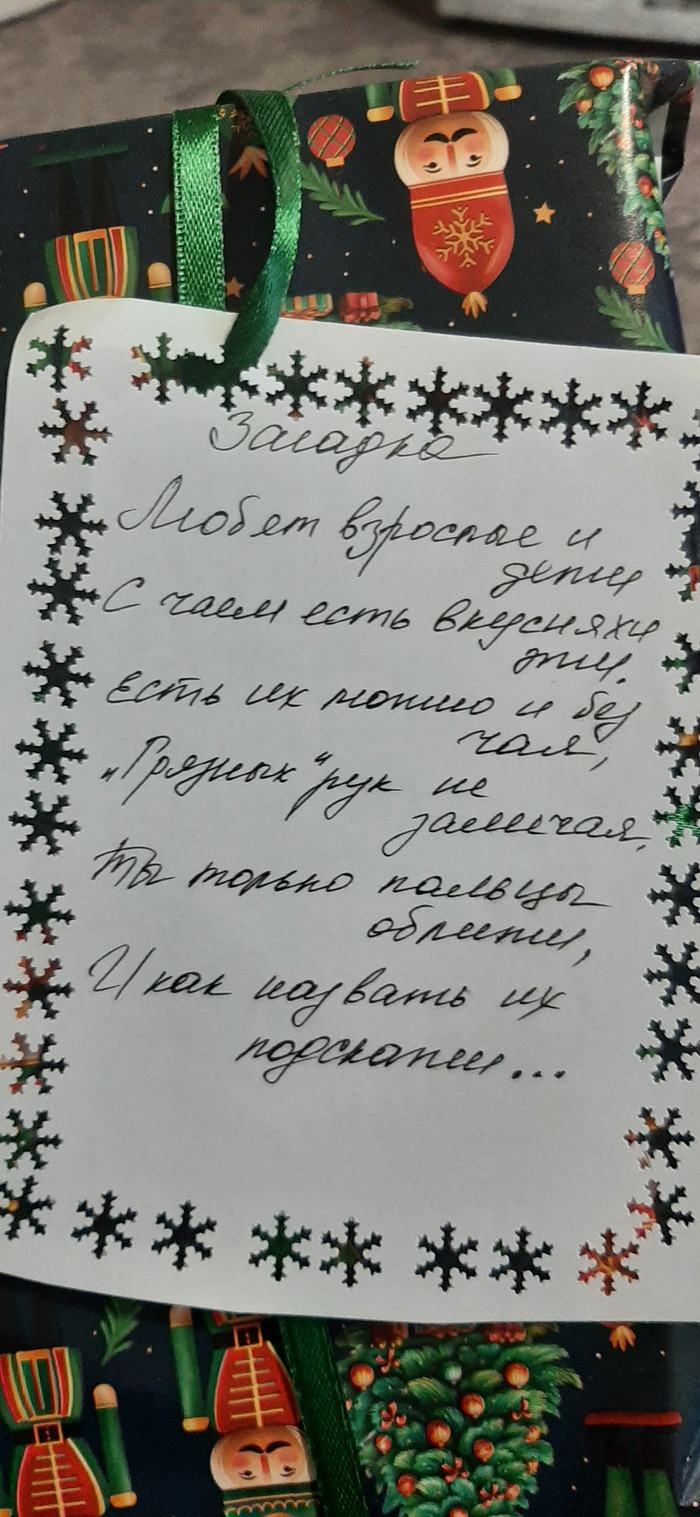 Загадка
Любят взрослые и
дети
С чаем есть вкусняхи
эти.
Есть их можно и без
чая,
„Грязных" рук не
замечая.
Ты только пальцы
оближи,
И как назвать их
подскажи...